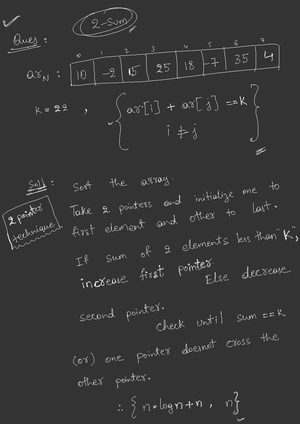 2-Sum
Ques :
0 1 2 3 4 5 6 7
arN : 10 -2 15 25 18 -7 35 4
K = 22 , { ar[i] + ar[j] == K
i ≠ j }
Soln : Sort the array.
2 pointer technique
Take 2 pointers and initialize one to
first element and other to last.
If sum of 2 elements less than "K",
increase first pointer.
Else decrease
second pointer.
Check until sum == K
(or) one pointer doesnot cross the
other pointer.
∴ { n*logn+n , n }